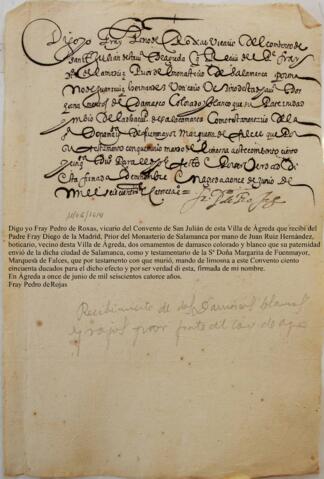 Digo yo Fray Pedro de Roxas Vicario del Convento de
San Julian desta Villa de Agreda q Recivi del Pe fray
Diego de la Madriz Prior del monasterio de Salamanca por ma
no de Juan Ruiz hernandez Vecino de
de Damasco Colorado y blanco que su Paternidad
embio de la ciudad de Salamanca Como testamentario de la
Sa Doña Margta de fuenmayor Marquesa de falces que Por
su testamento con que murio mando de limosna a este convento ciento y
cinqta Ducados Para el dicho efecto y Por ser Verdad di
esta firmada de mi nombre en Agreda a once de Junio de
mil y seiscientos y catorce años
11/06/1614
Digo yo Fray Pedro de Roxas, vicario del Convento de San Julián de esta Villa de Ágreda que recibí del
Padre Fray Diego de la Madrid, Prior del Monasterio de Salamanca por mano de Juan Ruiz Hernández,
boticario, vecino desta Villa de Ágreda, dos ornamentos de damasco colorado y blanco que su paternidad
envió de la dicha ciudad de Salamanca, como y testamentario de la Sª Doña Margarita de Fuenmayor,
Marquesa de Falces, que por testamento con que murió, mando de limosna a este Convento ciento
cincuenta ducados para el dicho efecto y por ser verdad di esta, firmada de mi nombre.
En Ágreda a once de junio de mil seiscientos catorce años.
Fray Pedro deRojas
Recibimiento de dos Damascos blanco
y rojos por parte del